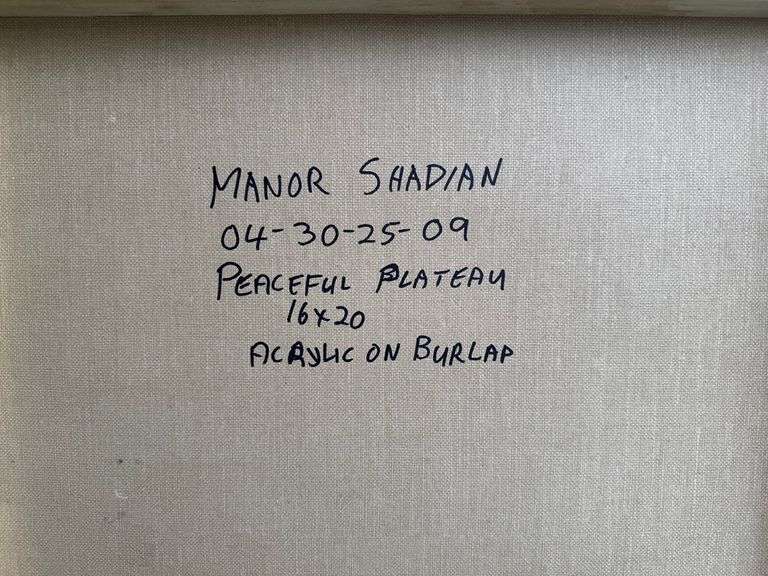 MANOR SHADIAN
04-30-25-09
PEACEFUL PLATEAU
16x20
ACRYLIC ON BURLAP